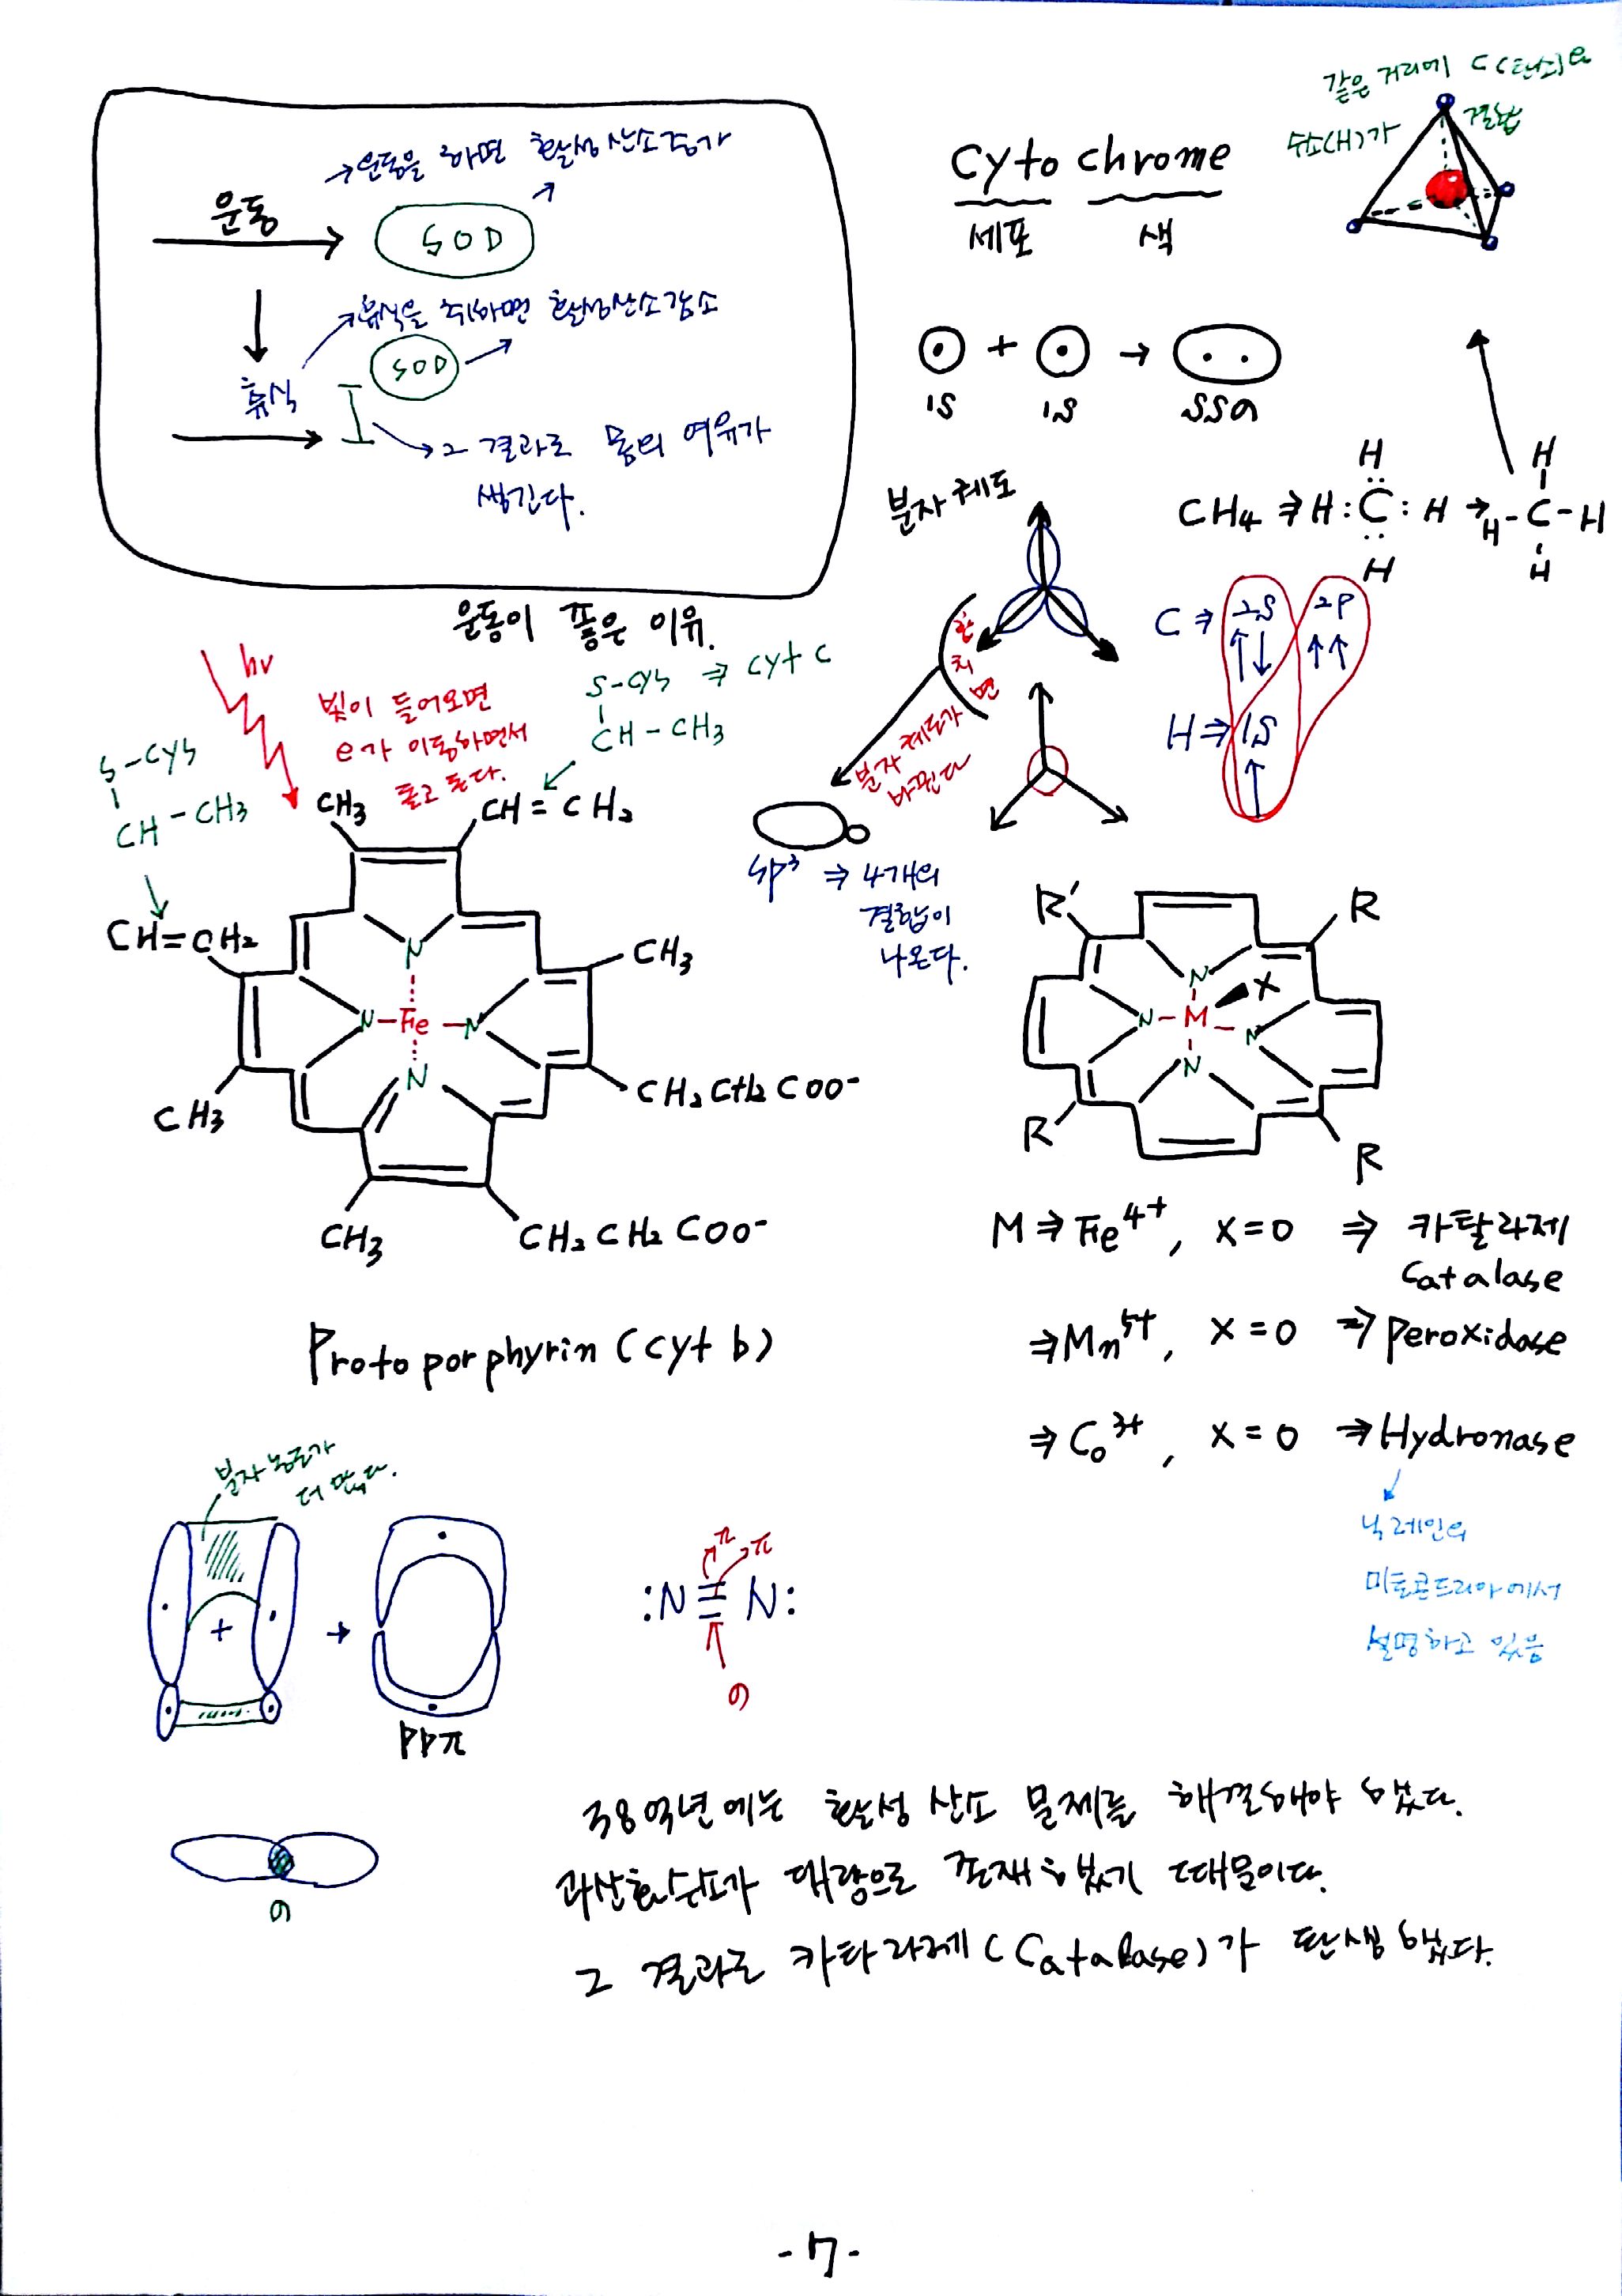 →운동을 하면 활성산소증가
운동
SOD
→휴식을 취하면 활성산소감소
SOD
휴식
→그 결과로 몸의 여유가
생긴다.
운동이 좋은 이유.
Cyto chrome
세포 색
같은 거리에 C(탄소)와
수소(H)가 결합
+ →
1S 1S SSσ
분자궤도
CH4 ⇒ H:C:H → H-C-H
H H
H H
합
치
면
분자 궤도가
바뀐다
C ⇒ 2S 2P
↑↓ ↑↑
H ⇒ 1S
↑
sp³ ⇒ 4개의
결합이
나온다.
hν
빛이 들어오면
e가 이동하면서
돌고 돈다.
S-Cys ⇒ Cyt C
CH-CH3
S-Cys
CH-CH3
CH3 CH=CH2
CH=CH2
CH3
N
N-Fe-N
N
CH3
CH2CH2COO-
CH3
CH2CH2COO-
Protoporphyrin (cyt b)
R' R
N X
N-M-N
N
R R
M ⇒ Fe4+, X=O ⇒ 카탈라제
Catalase
⇒ Mn5+, X=O ⇒ peroxidase
⇒ Co3+, X=O ⇒ Hydronase
닉 레인의
미토콘드리아에서
설명하고 있음
분자농도가
더 많다.
+ →
PPπ
π π
:N≡N:
σ
σ
38억년에는 활성 산소 문제를 해결해야 했다.
과산화수소가 대량으로 존재했기 때문이다.
그 결과로 카타라제(Catalase)가 탄생했다.
-7-